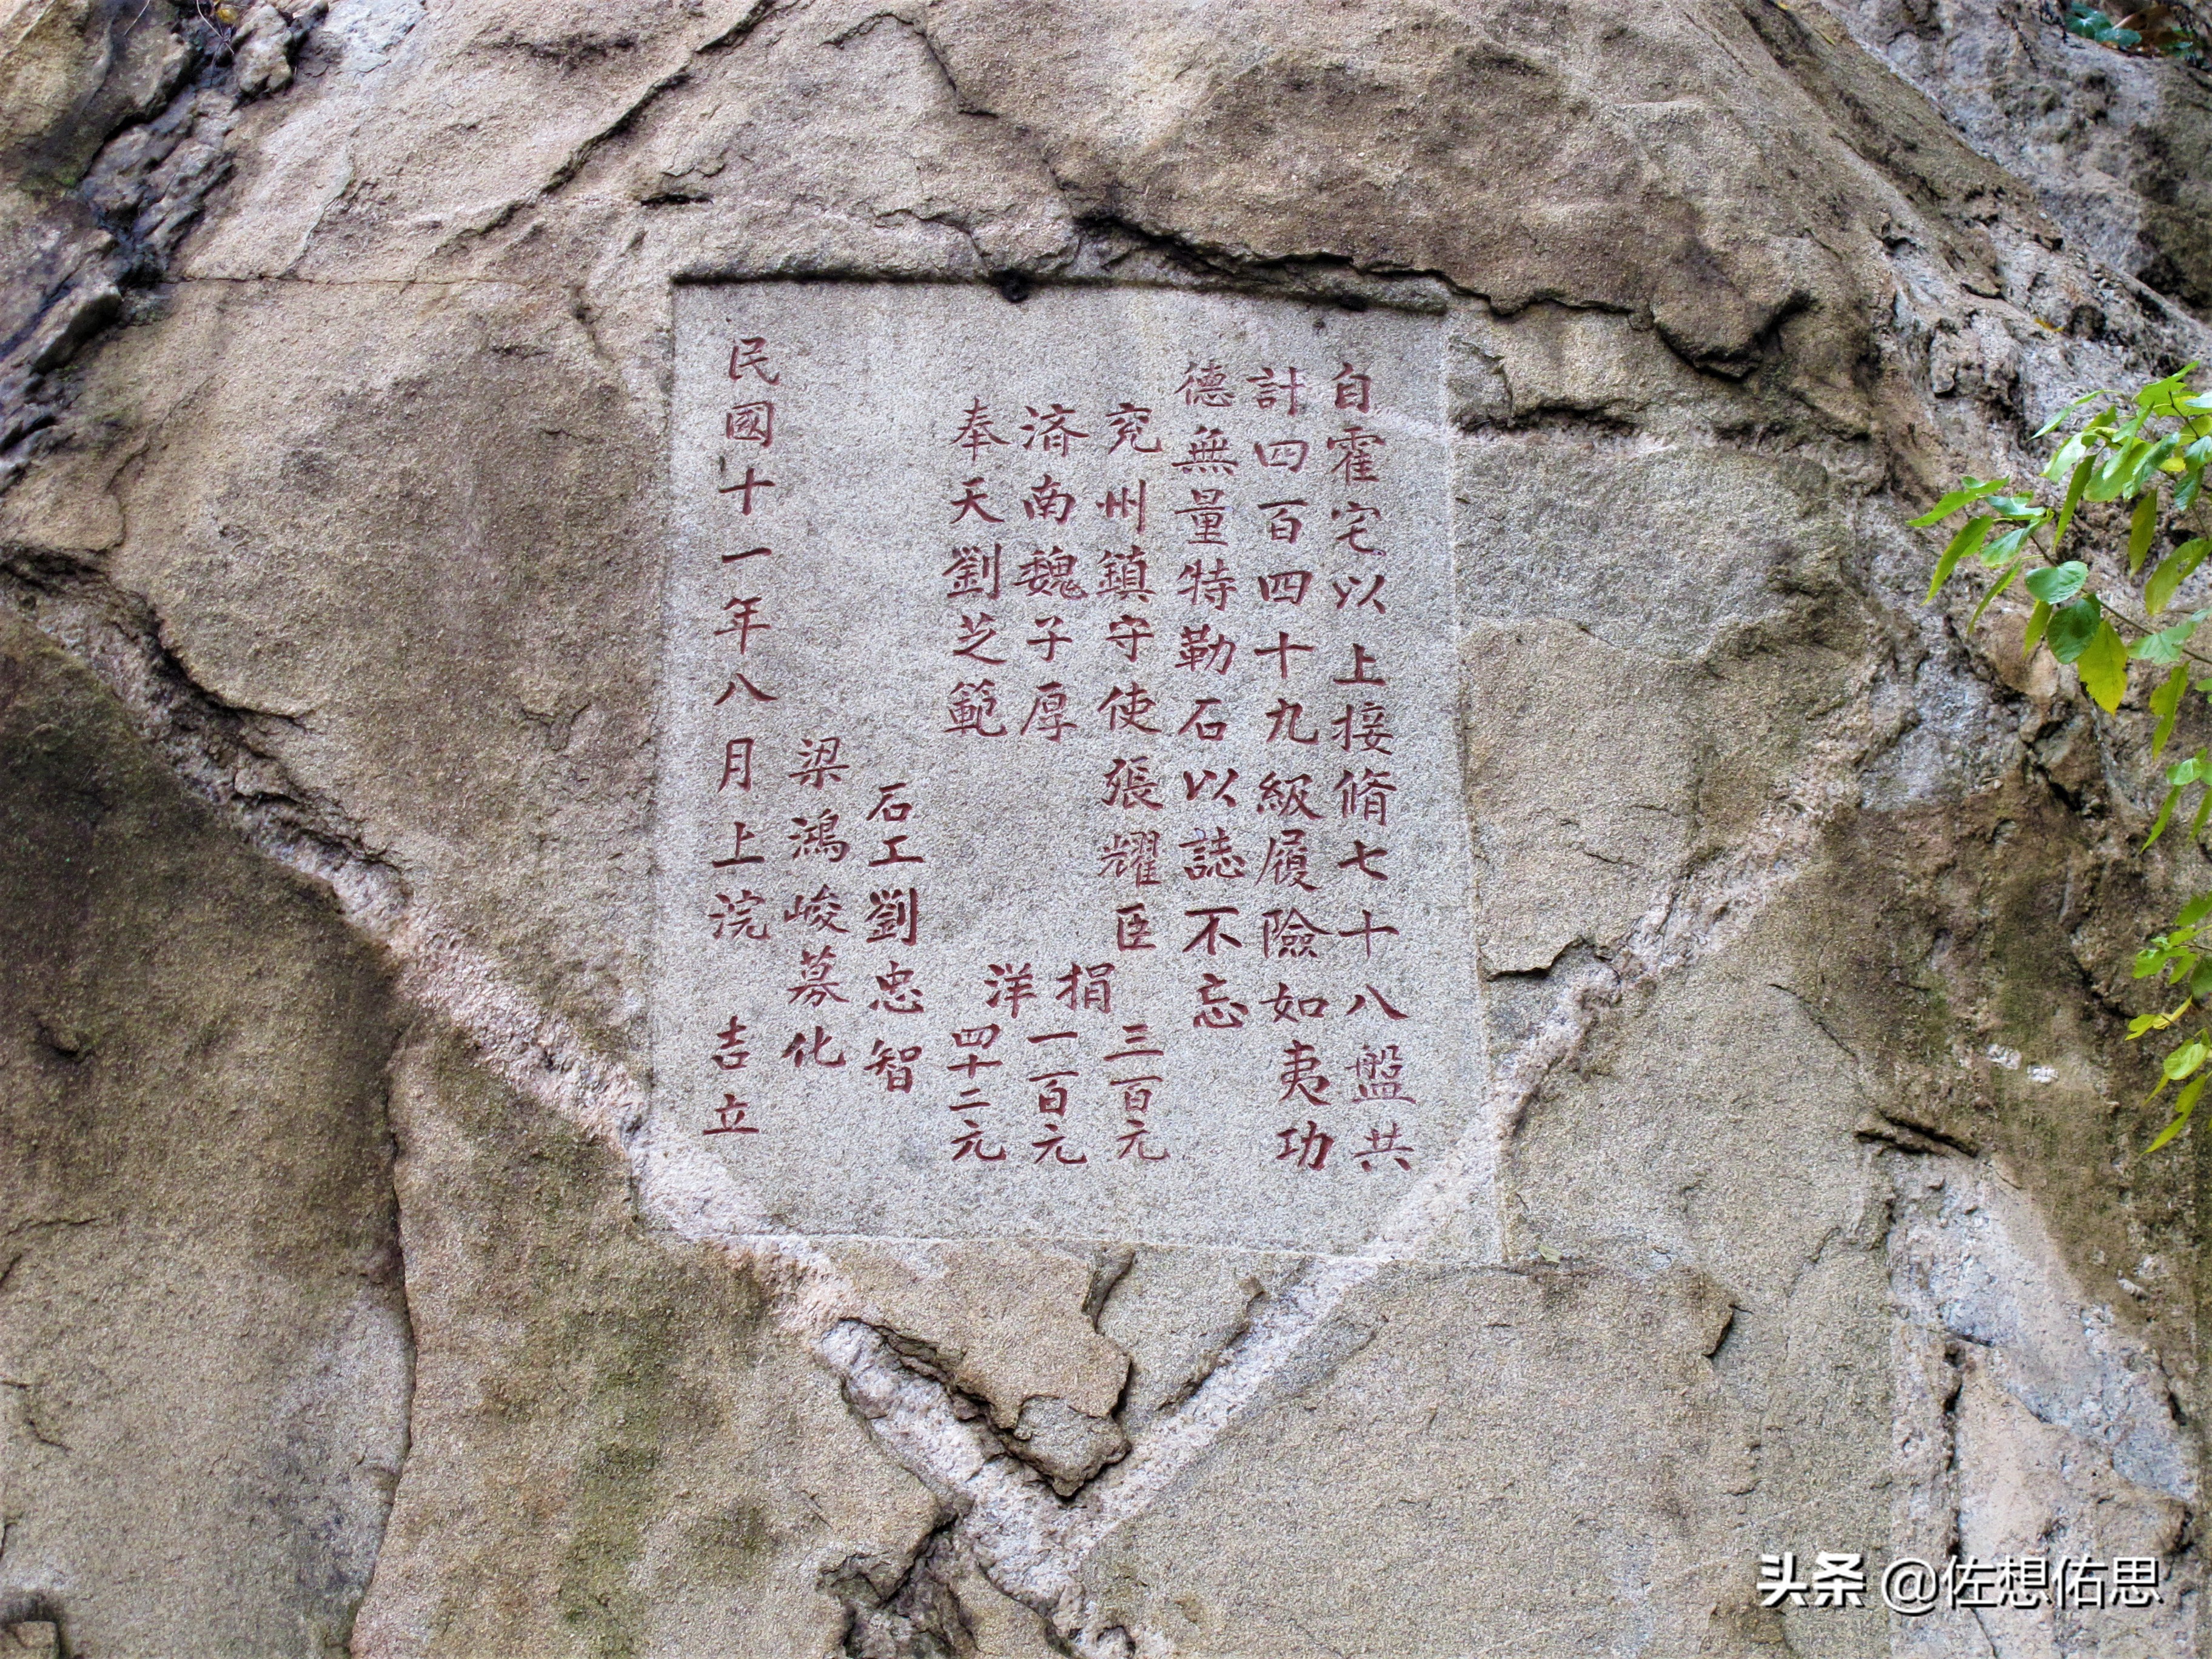 自霍宅以上接脩七十八盤共
計四百四十九級履險如夷功
德無量特勒石以誌不忘
兖州鎮守使張耀臣 三百元
濟南魏子厚 捐 一百元
奉天劉芝範 洋 四十二元
石工劉忠智
梁鴻峻募化
民國十一年八月上浣 吉立
头条 @佐想佑思